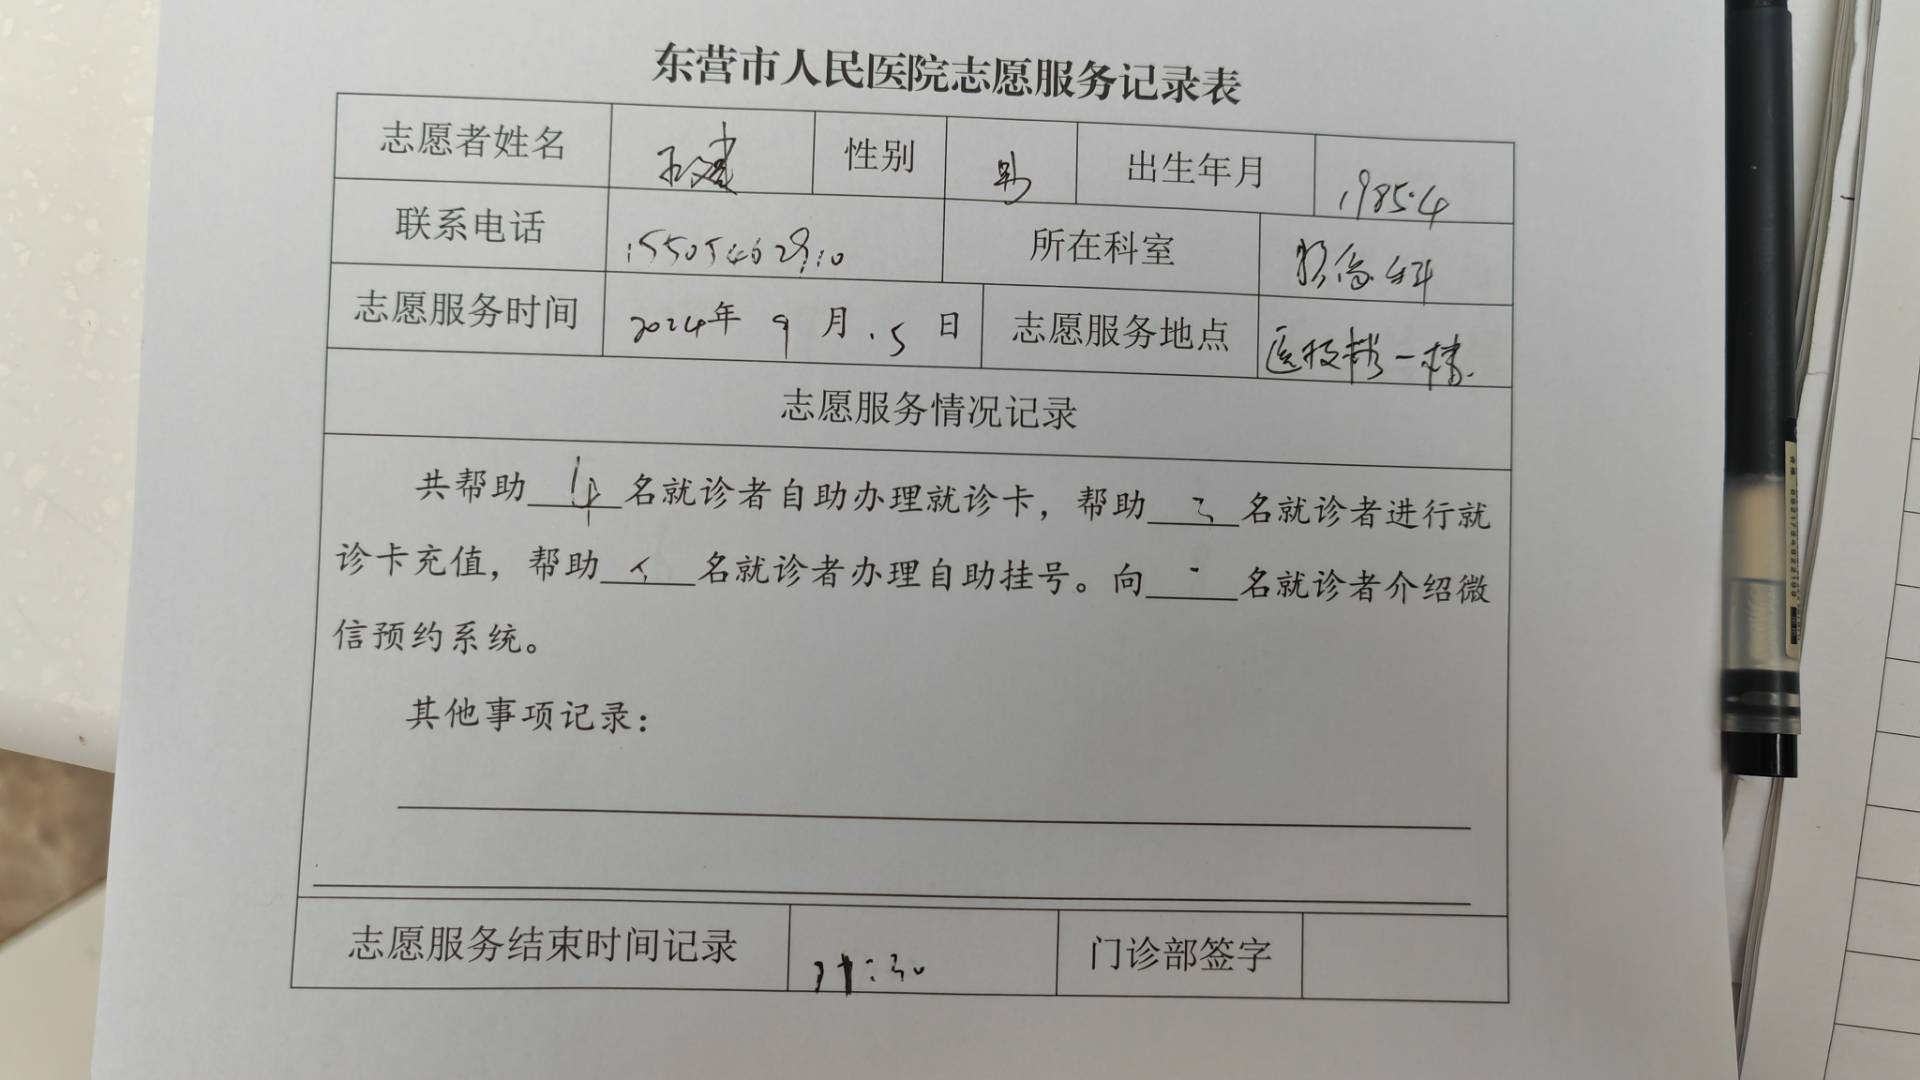 东营市人民医院志愿服务记录表
志愿者姓名 性别 男 出生年月 1985.4
联系电话 15505462910 所在科室 影像科
志愿服务时间 2024年 9 月 .5 日 志愿服务地点 医技楼一楼
志愿服务情况记录
共帮助 名就诊者自助办理就诊卡，帮助 3 名就诊者进行就
诊卡充值，帮助 名就诊者办理自助挂号。向 名就诊者介绍微
信预约系统。
其他事项记录：
志愿服务结束时间记录 门诊部签字